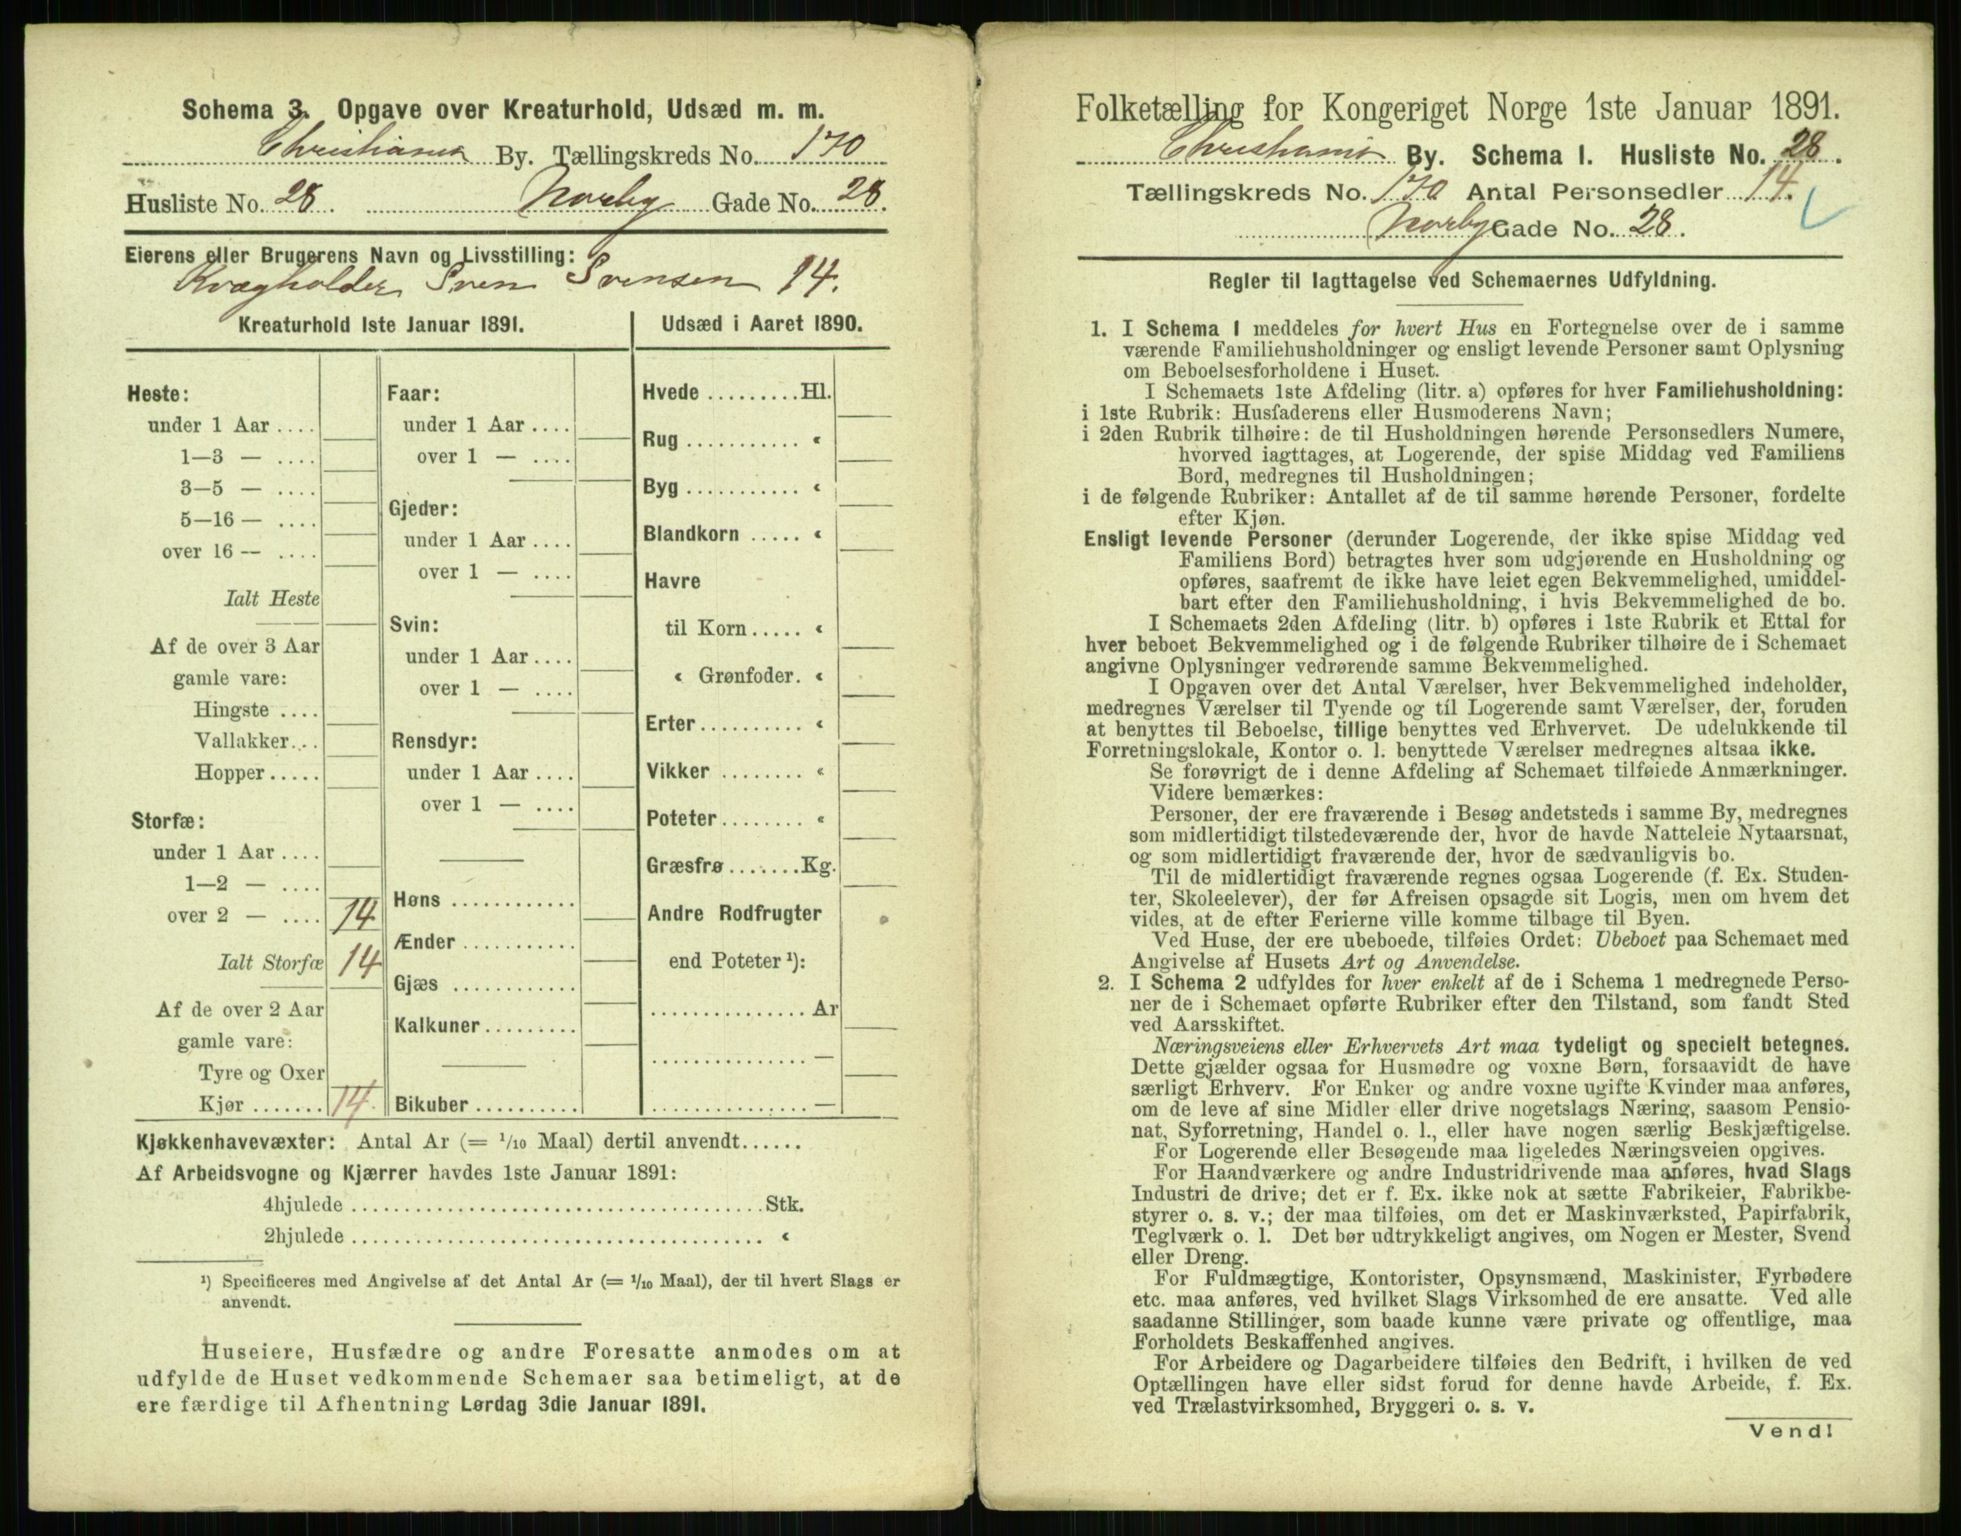 Schema 3. Opgave over Kreaturhold, Udsæd m. m.
Christiania By. Tællingskreds No. 170
Husliste No. 28. Norby Gade No. 28.
Eierens eller Brugerens Navn og Livsstilling:
Kvægholder Sven Svensen 14.
Kreaturhold 1ste Januar 1891.
Heste:
under 1 Aar ....
1—3 — ....
3—5 — ....
5—16 — ....
over 16 — ....
Ialt Heste
Af de over 3 Aar
gamle vare:
Hingste ....
Vallakker...
Hopper.....
Storfæ:
under 1 Aar ....
1—2 — ....
over 2 — .... 14
Ialt Storfæ 14
Af de over 2 Aar
gamle vare:
Tyre og Oxer
Kjør ....... 14.
Faar:
under 1 Aar ....
over 1 — ....
Gjeder:
under 1 Aar ....
over 1 — ....
Svin:
under 1 Aar ....
over 1 — ....
Rensdyr:
under 1 Aar ....
over 1 — ....
Høns ............
Ænder ...........
Gjæs ............
Kalkuner.........
Bikuber ..........
Udsæd i Aaret 1890.
Hvede .........Hl.
Rug ........... «
Byg ........... «
Blandkorn ..... «
Havre
til Korn ..... «
« Grønfoder. «
Erter.......... «
Vikker ........ «
Poteter........ «
Græsfrø .......Kg.
Andre Rodfrugter
end Poteter ¹):
............... Ar
............... —
............... —
Kjøkkenhavevæxter: Antal Ar (= 1/10 Maal) dertil anvendt......
Af Arbeidsvogne og Kjærrer havdes 1ste Januar 1891:
4hjulede ......................................Stk.
2hjulede ...................................... «
¹) Specificeres med Angivelse af det Antal Ar (= 1/10 Maal), der til hvert Slags er
anvendt.
Huseiere, Husfædre og andre Foresatte anmodes om at
udfylde de Huset vedkommende Schemaer saa betimeligt, at de
ere færdige til Afhentning Lørdag 3die Januar 1891.
Folketælling for Kongeriget Norge 1ste Januar 1891.
Christiania By. Schema 1. Husliste No. 28.
Tællingskreds No. 170 Antal Personsedler 14.
Norby Gade No. 28.
Regler til Iagttagelse ved Schemaernes Udfyldning.
1. I Schema 1 meddeles for hvert Hus en Fortegnelse over de i samme
værende Familiehusholdninger og ensligt levende Personer samt Oplysning
om Beboelsesforholdene i Huset.
I Schemaets 1ste Afdeling (litr. a) opføres for hver Familiehusholdning:
i 1ste Rubrik: Husfaderens eller Husmoderens Navn;
i 2den Rubrik tilhøire: de til Husholdningen hørende Personsedlers Numere,
hvorved iagttages, at Logerende, der spise Middag ved Familiens
Bord, medregnes til Husholdningen;
i de følgende Rubriker: Antallet af de til samme hørende Personer, fordelte
efter Kjøn.
Ensligt levende Personer (derunder Logerende, der ikke spise Middag ved
Familiens Bord) betragtes hver som udgjørende en Husholdning og
opføres, saafremt de ikke have leiet egen Bekvemmelighed, umiddel-
bart efter den Familiehusholdning, i hvis Bekvemmelighed de bo.
I Schemaets 2den Afdeling (litr. b) opføres i 1ste Rubrik et Ettal for
hver beboet Bekvemmelighed og i de følgende Rubriker tilhøire de i Schemaet
angivne Oplysninger vedrørende samme Bekvemmelighed.
I Opgaven over det Antal Værelser, hver Bekvemmelighed indeholder,
medregnes Værelser til Tyende og til Logerende samt Værelser, der, foruden
at benyttes til Beboelse, tillige benyttes ved Erhvervet. De udelukkende til
Forretningslokale, Kontor o. l. benyttede Værelser medregnes altsaa ikke.
Se forøvrigt de i denne Afdeling af Schemaet tilføiede Anmærkninger.
Videre bemærkes:
Personer, der ere fraværende i Besøg andetsteds i samme By, medregnes
som midlertidigt tilstedeværende der, hvor de havde Natteleie Nytaarsnat,
og som midlertidigt fraværende der, hvor de sædvanligvis bo.
Til de midlertidigt fraværende regnes ogsaa Logerende (f. Ex. Studen-
ter, Skoleelever), der før Afreisen opsagde sit Logis, men om hvem det
vides, at de efter Ferierne ville komme tilbage til Byen.
Ved Huse, der ere ubeboede, tilføies Ordet: Ubeboet paa Schemaet med
Angivelse af Husets Art og Anvendelse.
2. I Schema 2 udfyldes for hver enkelt af de i Schema 1 medregnede Perso-
ner de i Schemaet opførte Rubriker efter den Tilstand, som fandt Sted
ved Aarsskiftet.
Næringsveiens eller Erhvervets Art maa tydeligt og specielt betegnes.
Dette gjælder ogsaa for Husmødre og voxne Børn, forsaavidt de have
særligt Erhverv. For Enker og andre voxne ugifte Kvinder maa anføres,
om de leve af sine Midler eller drive nogetslags Næring, saasom Pensio-
nat, Syforretning, Handel o. l., eller have nogen særlig Beskjæftigelse.
For Logerende eller Besøgende maa ligeledes Næringsveien opgives.
For Haandværkere og andre Industridrivende maa anføres, hvad Slags
Industri de drive; det er f. Ex. ikke nok at sætte Fabrikeier, Fabrikbe-
styrer o. s. v.; der maa tilføies, om det er Maskinværksted, Papirfabrik,
Teglværk o. l. Det bør udtrykkeligt angives, om Nogen er Mester, Svend
eller Dreng.
For Fuldmægtige, Kontorister, Opsynsmænd, Maskinister, Fyrbødere
etc. maa anføres, ved hvilket Slags Virksomhed de ere ansatte. Ved alle
saadanne Stillinger, som baade kunne være private og offentlige, maa
Forholdets Beskaffenhed angives.
For Arbeidere og Dagarbeidere tilføies den Bedrift, i hvilken de ved
Optællingen have eller sidst forud for denne havde Arbeide, f. Ex.
ved Trælastvirksomhed, Bryggeri o. s. v.
Vend!